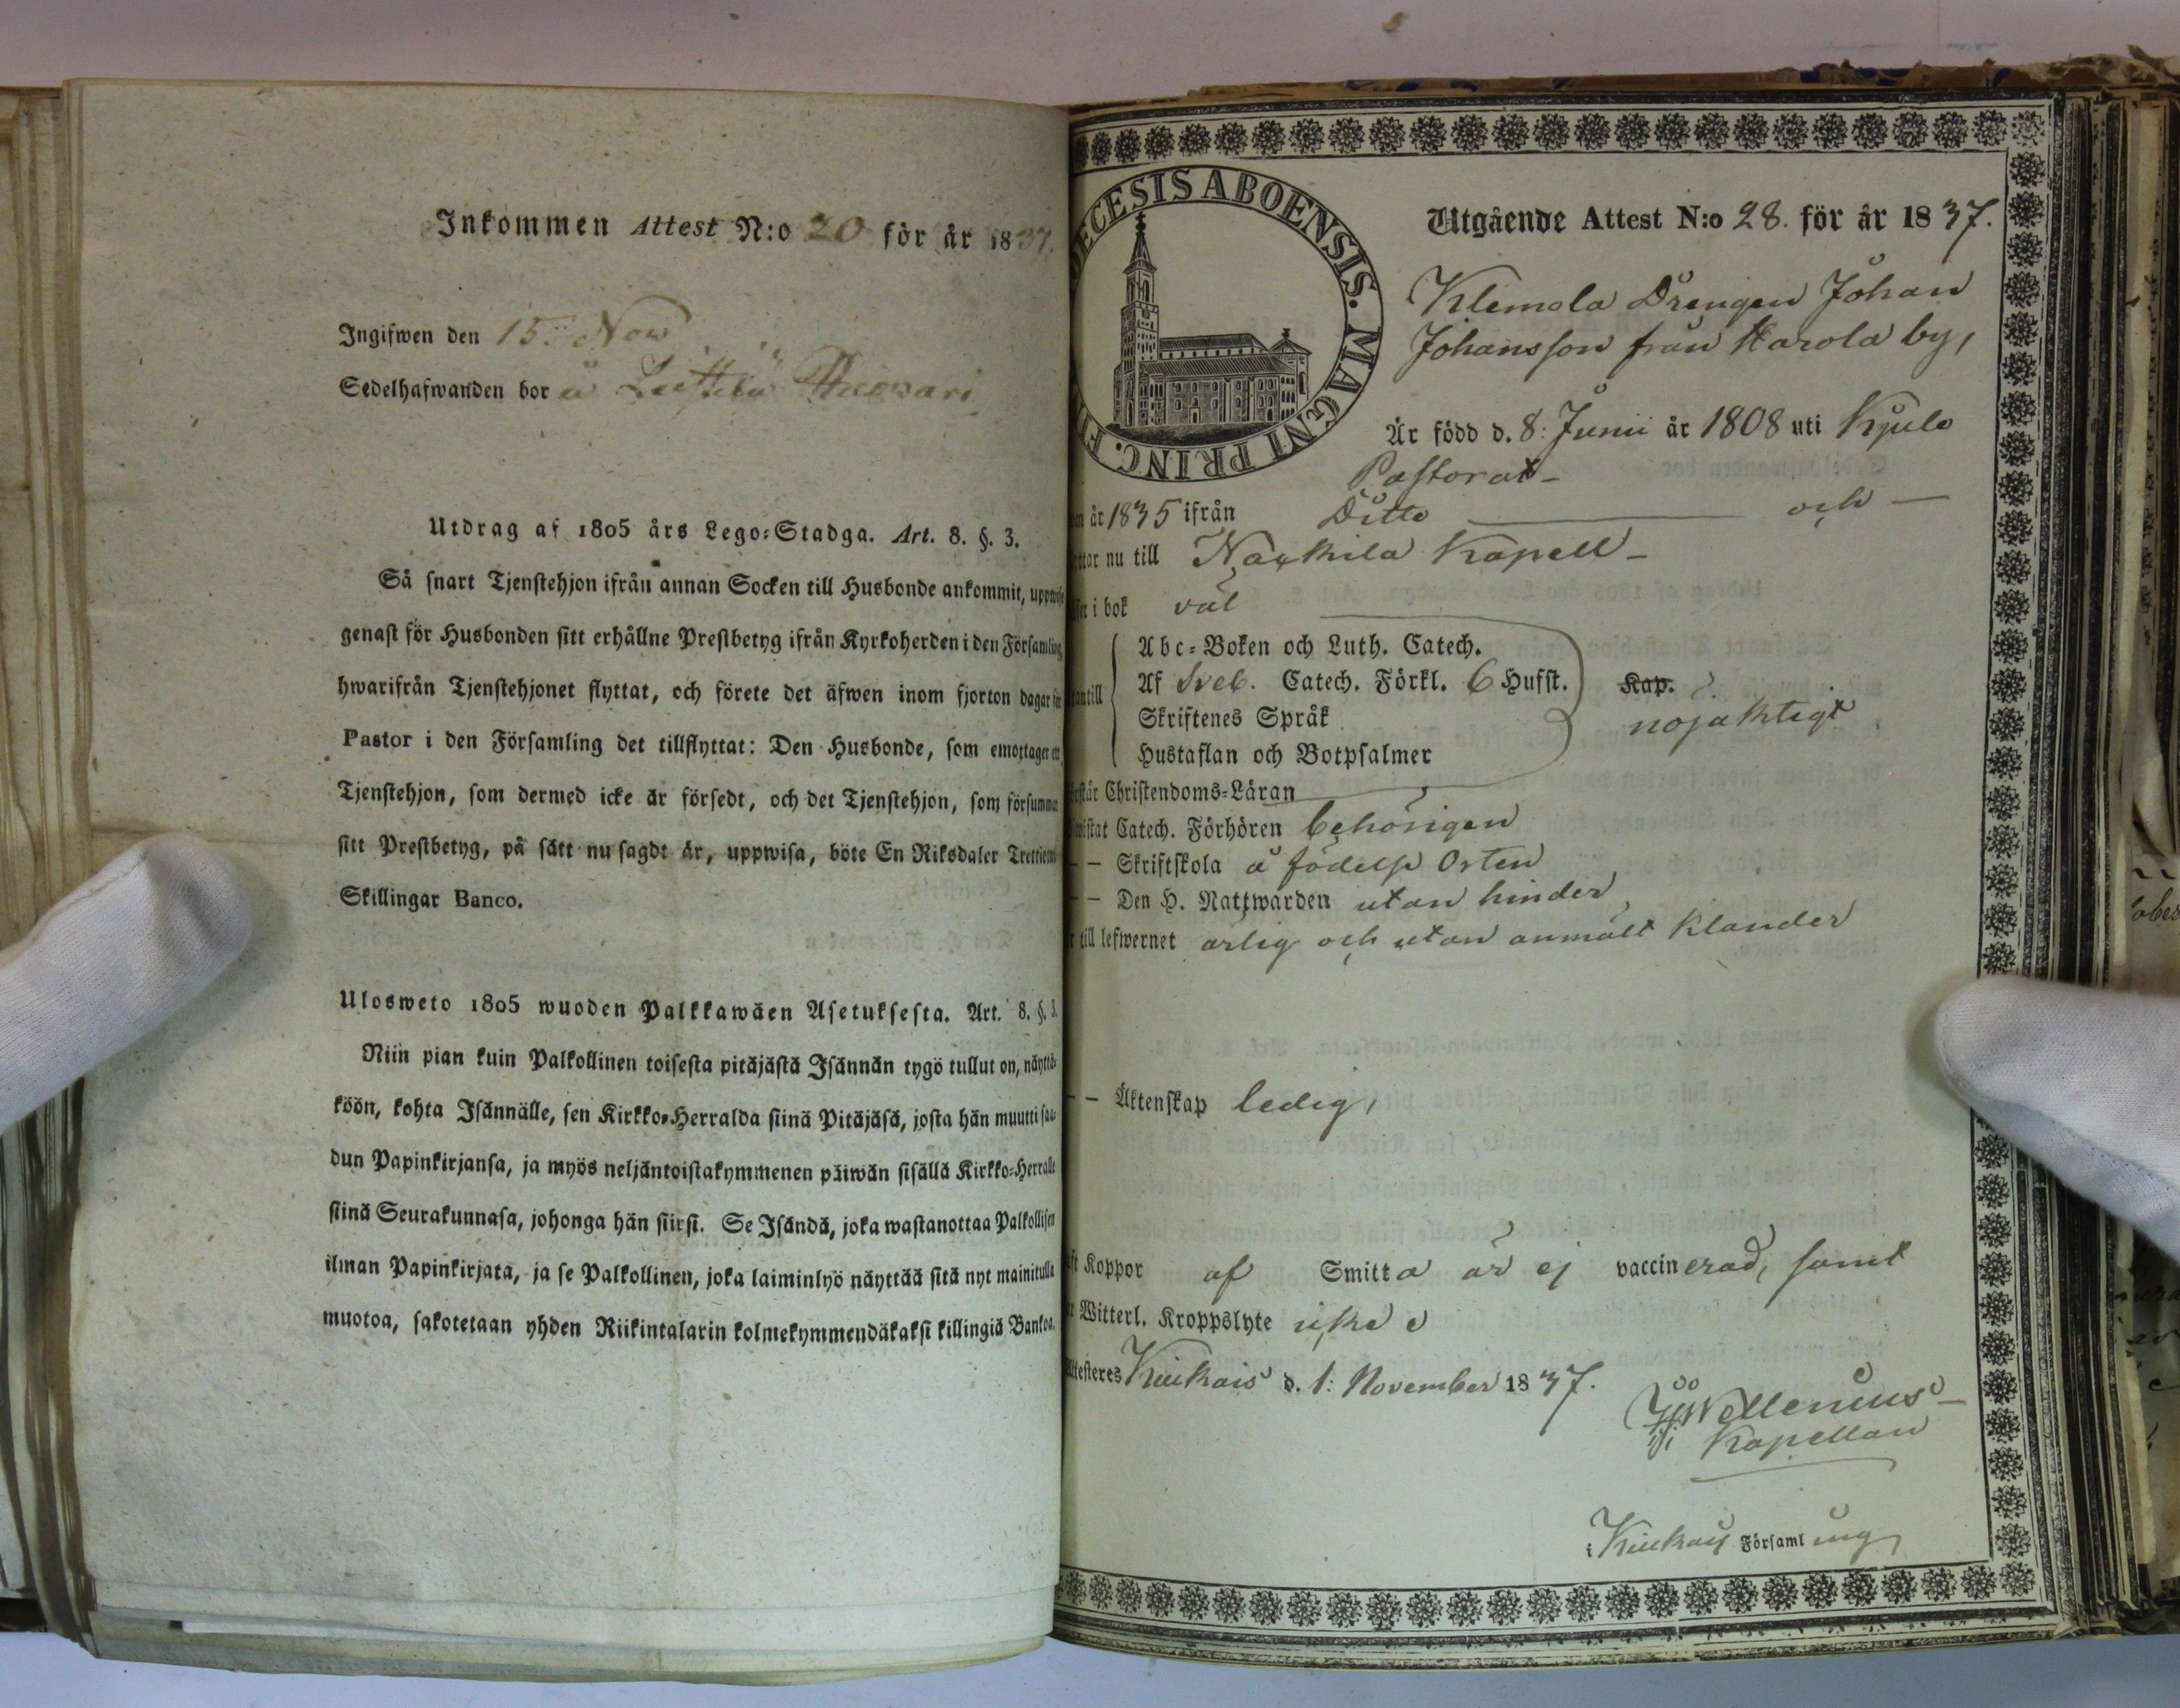 Inkommen Attest N:o 20 för år 1837.
Ingifwen den 15: Nov
Sedelhafwanden bor å
Utdrag af 1805 års Lego-Stadga. Art. 8. §. 3.
Så snart Tjenstehjon ifrån annan Socken till Husbonde ankommit, uppwise
genast för Husbonden sitt erhållne Prestbetyg ifrån Kyrkoherden i den Församling
hwarifrån Tjenstehjonet flyttat, och förete det äfwen inom fjorton dagar för
Pastor i den Församling det tillflyttat: Den Husbonde, som emottager ett
Tjenstehjon, som dermed icke är försedt, och det Tjenstehjon, som försummar
sitt Prestbetyg, på sätt nu sagdt är, uppwisa, böte En Riksdaler Trettiotwå
Skillingar Banco.
Ulosweto 1805 wuoden Palkkawäen Asetuksesta. Art. 8. §. 3.
Niin pian kuin Palkollinen toisesta pitäjästä Isännän tygö tullut on, näyttä-
köön, kohta Isännälle, sen Kirkko-Herralda siinä Pitäjäsä, josta hän muutti saa-
dun Papinkirjansa, ja myös neljäntoistakymmenen päiwän sisällä Kirkko-Herralle
siinä Seurakunnasa, johonga hän siirsi. Se Isändä, joka wastanottaa Palkollisen
ilman Papinkirjata, ja se Palkollinen, joka laiminlyö näyttää sitä nyt mainitulla
muotoa, sakotetaan yhden Riikintalarin kolmekymmendäkaksi killingiä Bankoa.
ECESIS ABOENSIS. MAGNI PRINC. FI
Utgående Attest N:o 28. för år 1837.
Klemola Drengen Johan
Johansson från Karola by,
Är född d. 8: Junii år 1808 uti Kjulo
Pastorat-
m år 1835 ifrån Ditto och
ttar nu till Nackila Kapell-
ser i bok väl
Abc-Boken och Luth. Catech.
Af Sveb. Catech. Förkl. 6 Hufst. Kap.
antill
Skriftenes Språk nöjaktigt
Hustaflan och Botpsalmer
rstår Christendoms-Läran
wistat Catech. Förhören behörigen
-- Skriftskola å födelse Orten
-- Den H. Nattwarden utan hinder
r till lefwernet ärlig och utan anmält klander
-- Äktenskap ledig,
ft Koppor af Smitta är ej vaccinerad, samt
r Witterl. Kroppslyte icke
Attesteres Kiukais d. 1: November 1837.
Wellenius-
Kapellan
i Kiukais Församling